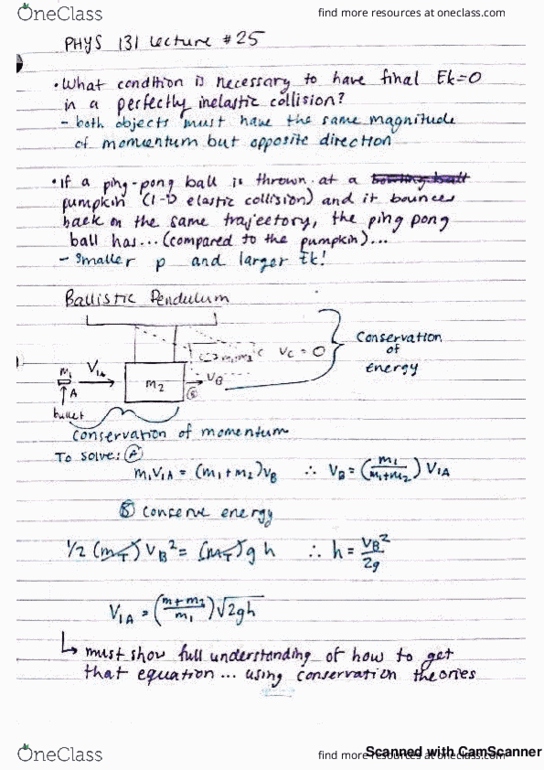 OneClass
find more resources at oneclass.com
PHYS 131 Lecture #25
• What condition is necessary to have final Ek=0
in a perfectly inelastic collision?
- both objects must have the same magnitude
of momentum but opposite direction
• If a ping-pong ball is thrown at a
pumpkin (1-D elastic collision) and it bounces
back on the same trajectory, the ping pong
ball has... (compared to the pumpkin)...
- smaller p and larger Ek!
Ballistic Pendulum
Conservation
of
energy
m1+m2 c Vc = 0
m1 V1A m2 VB
A B
bullet
conservation of momentum
To solve: A
m1V1A = (m1+m2)VB ∴ VB = (m1/m1+m2) V1A
B conserve energy
1/2 (mT) VB² = (mT) g h ∴ h = VB²/2g
V1A = (m+m2/m1) √2gh
↳ must show full understanding of how to get
that equation ... using conservation theories
OneClass
find more resources at oneclass.com
Scanned with CamScanner